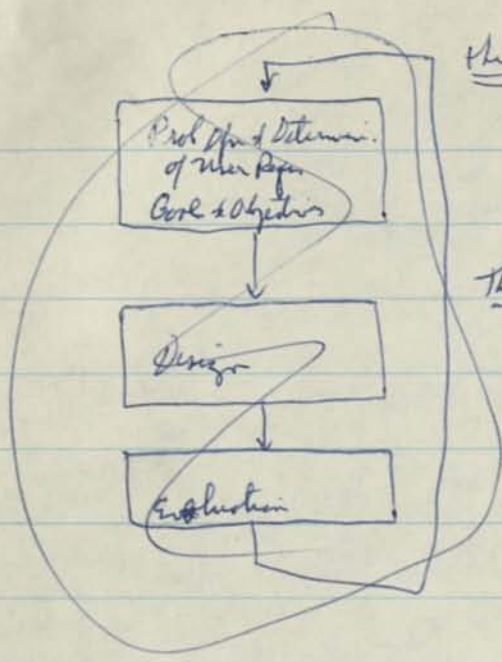 the
Prob Dfn & Determin.
of User Reqs
Goals & Objectives
Th
Design
Evaluation